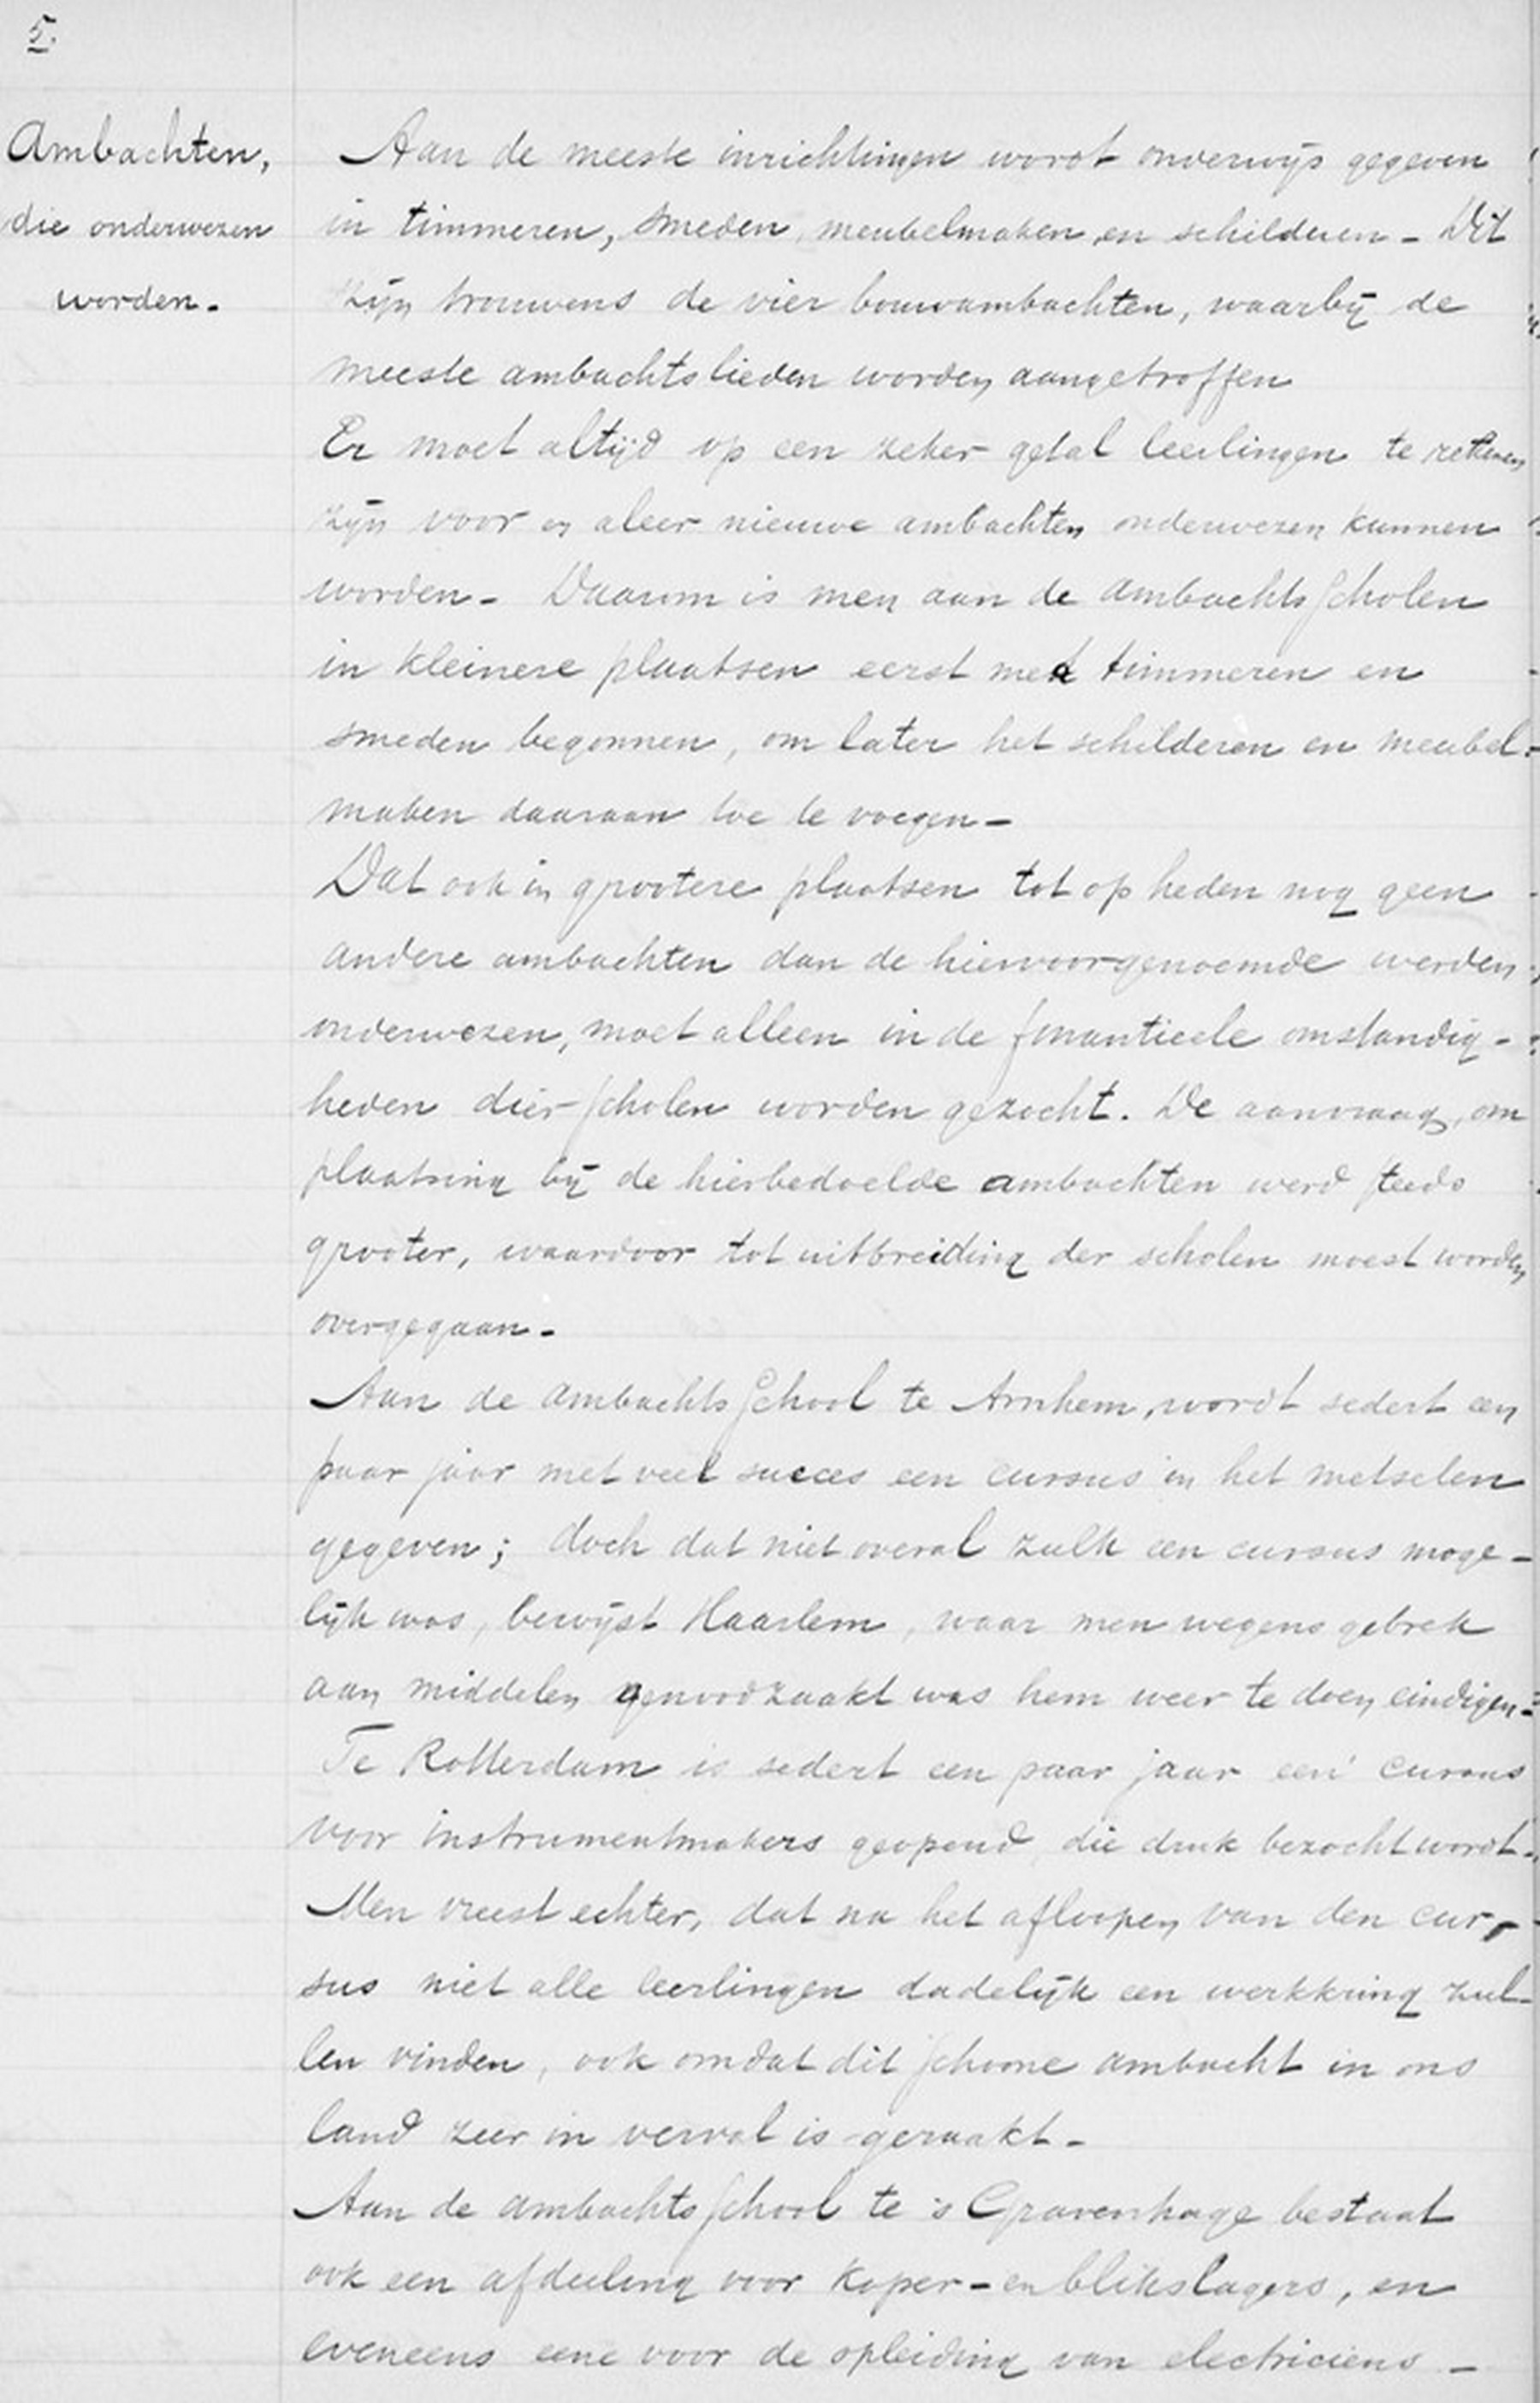 5.
Ambachten,
die onderwezen
worden.
Aan de meeste inrichtingen wordt onderwijs gegeven
in timmeren, smeden, meubelmaken en schilderen - Dit
zijn trouwens de vier bouwambachten, waarbij de
meeste ambachtslieden worden aangetroffen
Er moet altijd op een zeker getal leerlingen te rekenen
zijn voor en aleer nieuwe ambachten onderwezen kunnen
worden - Daarom is men aan de ambachtsscholen
in kleinere plaatsen eerst met timmeren en
smeden begonnen, om later het schilderen en meubel-
maken daaraan toe te voegen -
Dat ook in grootere plaatsen tot op heden nog geen
andere ambachten dan de hiervoorgenoemde werden
onderwezen, moet alleen in de finantieele omstandig-
heden dier scholen worden gezocht. De aanvraag, om
plaatsing bij de hierbedoelde ambachten werd steeds
grooter, waardoor tot uitbreiding der scholen moest worden
overgegaan -
Aan de ambachtsschool te Arnhem, wordt sedert een
paar jaar met veel succes een cursus in het metselen
gegeven; doch dat niet overal zulk een cursus moge-
lijk was, bewijst Haarlem, waar men wegens gebrek
aan middelen genoodzaakt was hem weer te doen eindigen -
Te Rotterdam is sedert een paar jaar een cursus
voor instrumentmakers geopend, die druk bezocht wordt -
Men vreest echter, dat na het afloopen van den cur-
sus niet alle leerlingen dadelijk een werkkring zul-
len vinden, ook omdat dit schoone ambacht in ons
land zeer in verval is geraakt -
Aan de ambachtsschool te 's Gravenhage bestaat
ook een afdeeling voor koper- en blikslagers, en
eveneens eene voor de opleiding van electriciens -